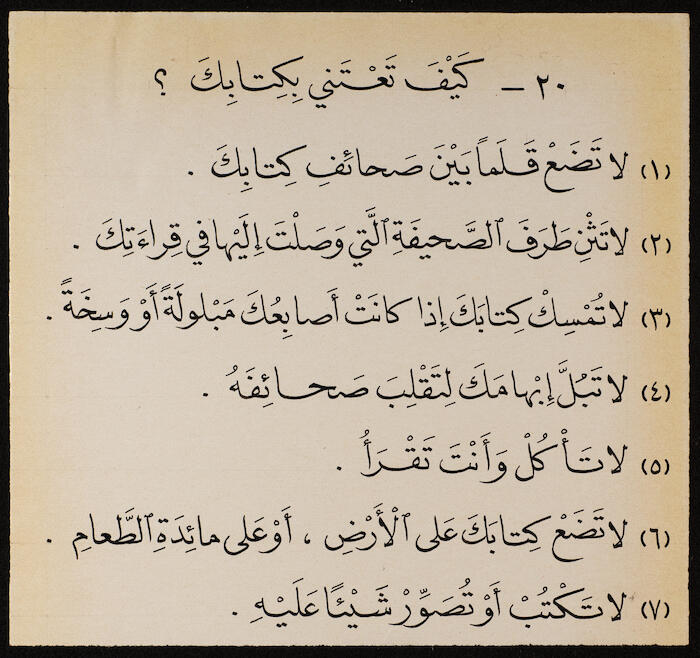 ٢٠ – كَيْفَ تَعْتَني بِكِتابِكَ ؟
(١) لا تَضَعْ قَلَماً بَيْنَ صَحائفِ كِتابِكَ .
(٢) لا تَثْنِ طَرَفَ ٱلصَّحيفَةِ ٱلَّتي وَصَلْتَ إِلَيْها في قِراءَتِكَ .
(٣) لا تُمْسِكْ كِتابَكَ إِذا كانَتْ أَصابِعُكَ مَبْلولَةً أَوْ وَسِخَةً .
(٤) لا تَبُلَّ إِبْهامَكَ لِتَقْلِبَ صَحائِفَهُ .
(٥) لا تَأْكُلْ وَأَنْتَ تَقْرَأُ .
(٦) لا تَضَعْ كِتابَكَ عَلى ٱلْأَرْضِ ، أَوْ عَلى مائِدَةِ ٱلطَّعامِ .
(٧) لا تَكْتُبْ أَوْ تُصَوِّرْ شَيْئًا عَلَيْهِ .